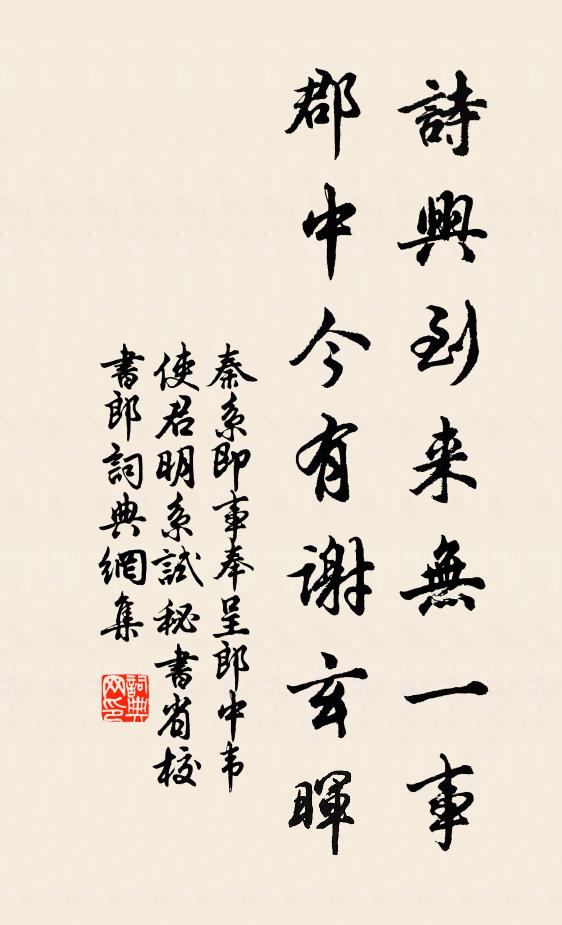 詩興到来無一事
郡中今有謝玄暉
秦系即事奉呈郎中韦
使君明系試秘書省校
書郎詞典網集
詞典网印